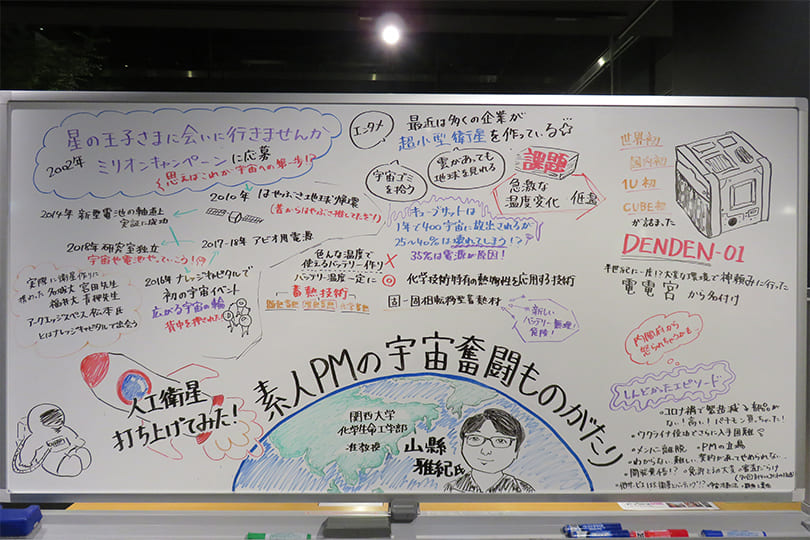 星の王子さまに会いに行きませんか
2002年 ミリオンキャンペーンに応募
思えばこれが宇宙への第一歩!?
2010年 はやぶさ地球帰還
(昔からはやぶさ推してたなぁ)
2014年 新型電池の軌道上
実証に成功
2017-18年 アビオ用電源
2018年 研究室独立
宇宙や電池やっていこう!
2016年 ナレッジキャピタルで
初の宇宙イベント
広がる宇宙の輪
背中を押された
福井大 青柳先生
アークエッジスペース
とはナレッジキャピタルで出会う
人工衛星
打ち上げてみた!
エンタメ
最近は多くの企業が
超小型衛星を作っている☆
宇宙ゴミ
を拾う
雲があっても
地球を見れる
課題
急激な
温度変化
低温
キューブサットは
1年で400宇宙に放出されるが
25~40%は壊れてしまう!?
35%は電源が原因!
色んな温度で
使えるバッテリー作り ×
バッテリー温度一定に ◎
蓄熱技術
化学技術特有の熱物性を応用する技術
固-固相転移型蓄熱材
新しい
バッテリー無理!
発隊!
素人PMの宇宙奮闘ものがたり
関西大学
化学生命工学部
准教授
山縣
雅紀氏
世界初
国内初
1U初
CUBE初
が詰まった
DENDEN-01
半世紀に一度!?大変な環境で神頼みに行った
電電宮から名付け
内閣府から
怒られちゃうかも
しんどかったエピソード
・ウクライナ侵攻でさらに入手困難
・メンバー離脱 → PMの重責